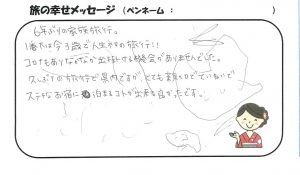 旅の幸せメッセージ（ペンネーム：　　　　　　）
6年ぶりの家族旅行。
1番下は今3歳で人生初の旅行!!
コロナもありなかなか出掛ける機会がありませんでした。
久しぶりの旅行で県内ですが、とても
ステキなお宿に泊まるコトが出来て良かったです。